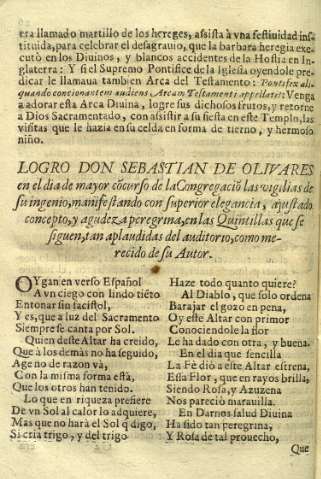 era llamado martillo de los hereges, assista à vna festiuidad ins-
tituida, para celebrar el desagrauio, que la barbara heregia exe-
cutò en los Diuinos, y blancos accidentes de la Hostia en In-
glaterra: Y si el Supremo Pontifice de la Iglesia oyendole pre-
dicar le llamaua tambien Arca del Testamento: Pontifex ali-
quando concionantem audiens, Arcam Testamenti appellaret: Venga
a adorar esta Arca Diuina, logre sus dichosos frutos, y retorne
a Dios Sacramentado, con assistir a su fiesta en este Templo, las
visitas que le hazia en su celda en forma de tierno, y hermoso
niño.
LOGRO DON SEBASTIAN DE OLIVARES
en el dia de mayor cõcurso de la Congregaciõ las vigilias de
su ingenio, manifestando con superior elegancia, ajustado
concepto, y agudeza peregrina, en las Quintillas que se
siguen, tan aplaudidas del auditorio, como me-
recido de su Autor.
OYgan en verso Español
A vn ciego con lindo tiẽto
Entonar sin facistol,
Y es, que a luz del Sacramento
Siempre se canta por Sol.
Quien deste Altar ha creido,
Que à los demàs no ha seguido,
Ageno de razon và,
Con la misma forma està,
Que los otros han tenido.
Lo que en riqueza prefiere
De vn Sol al calor lo adquiere,
Mas que no harà el Sol q̃ digo,
Si cria trigo, y del trigo
Haze todo quanto quiere?
Al Diablo, que solo ordena
Barajar el gozo en pena,
Oy este Altar con primor
Conociendole la flor
Le ha dado con otra, y buena.
En el dia que sencilla
La Fè diò a este Altar estrena,
Esta Flor, que en rayos brilla,
Siendo Rosa, y Azuzena
Nos pareciò marauilla.
En Darnos salud Diuina
Ha sido tan peregrina,
Y Rosa de tal prouecho,
Que